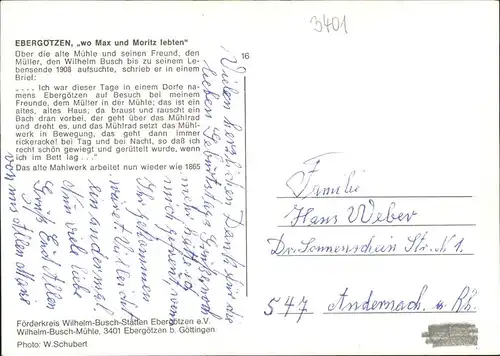 3401
EBERGÖTZEN, „wo Max und Moritz lebten"
Über die alte Mühle und seinen Freund, den
Müller, den Wilhelm Busch bis zu seinem Le-
bensende 1908 aufsuchte, schrieb er in einem
Brief:
„. . . Ich war dieser Tage in einem Dorfe na-
mens Ebergötzen auf Besuch bei meinem
Freunde, dem Müller in der Mühle; das ist ein
altes, altes Haus; da braust und rauscht ein
Bach dran vorbei, der geht über das Mühlrad
und dreht es, und das Mühlrad setzt das Mühl-
werk in Bewegung, das geht dann immer
rickeracke! bei Tag und bei Nacht, so daß ich
recht schön gewiegt und gerüttelt wurde, wenn
ich im Bett lag . . ."
Das alte Mahlwerk arbeitet nun wieder wie 1865
16
Vielen herzlichen Dank für die
lieben Geburtstags Grüße, noch
mehr hätte ich
mich gefreut, wenn
Ihr gekommen
wäret. Vielleicht
ein andermal.
Nun viele liebe
Grüße Euch Allen
von uns Allen
Familie
Hans Weber
Dr. Sonnenschein Str. N. 1
547 Andernach a. Rh.
Förderkreis Wilhelm-Busch-Stätten Ebergötzen e.V.
Wilhelm-Busch-Mühle, 3401 Ebergötzen b. Göttingen
Photo: W. Schubert